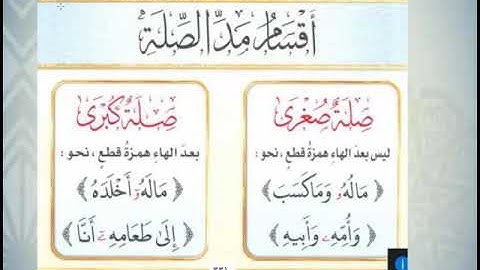 أَقْسَامُ مَدِّ الصِّلَةِ
صِلَةٌ صُغْرَى
ليس بعدَ الهاءِ همزةُ قطعٍ ، نحو :
﴿ مَالُهُۥ وَمَا كَسَبَ ﴾
﴿ وَأُمِّهِۦ وَأَبِيهِ ﴾
صِلَةٌ كُبْرَى
بعدَ الهاءِ همزةُ قطعٍ ، نحو :
﴿ مَالَهُۥٓ أَخْلَدَهُ ﴾
﴿ إِلَى طَعَامِهِۦٓ أَنَّا ﴾